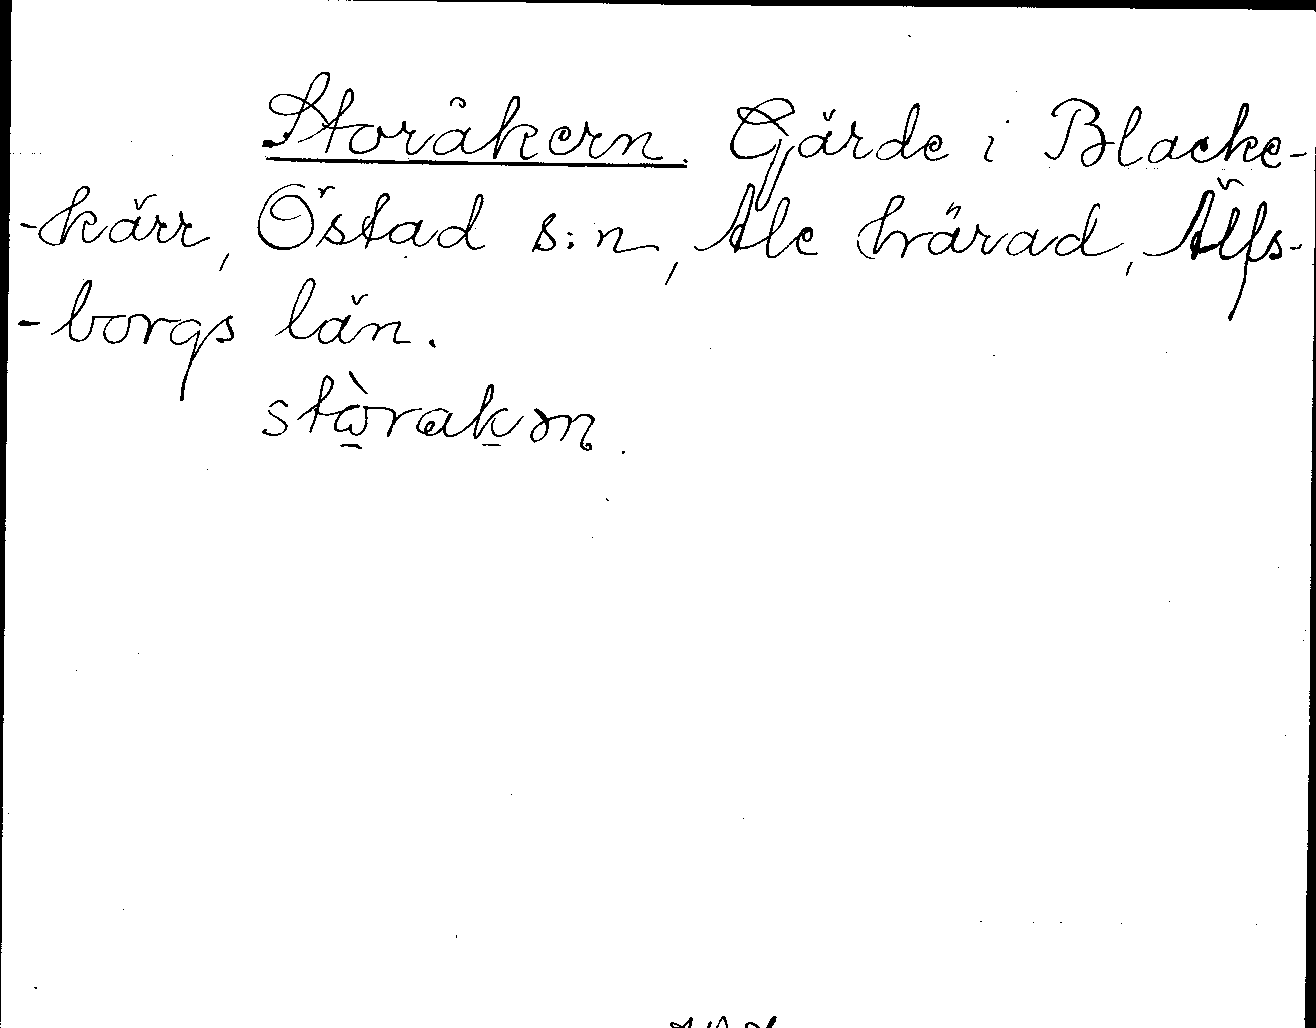 Storåkern. Gärde i Blacke-
-kärr, Östad s:n, Ale härad, Älfs-
-borgs län.
stòrakən.